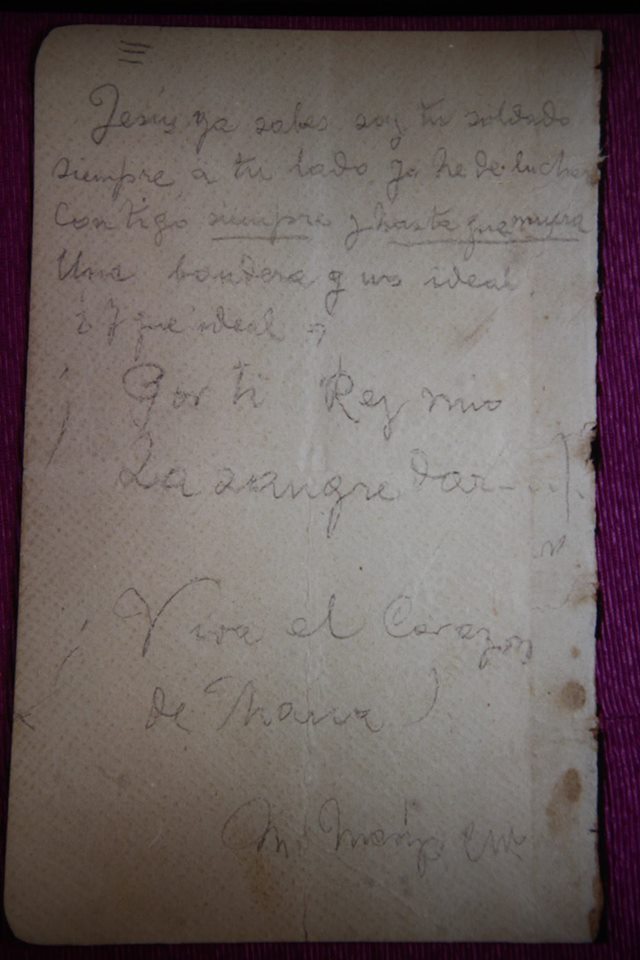 Jesús ya sabes soy tu soldado
siempre a tu lado yo he de luchar
Contigo siempre y hasta que muera
Una bandera y un ideal
¿Y que ideal?
¡ Por ti Rey mio
La sangre dar....!
¡ Viva el Corazon
de Maria !
M.